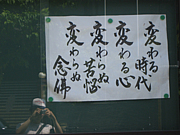 変わる時代
変わる心
変わらぬ苦悩
変わらぬ念佛